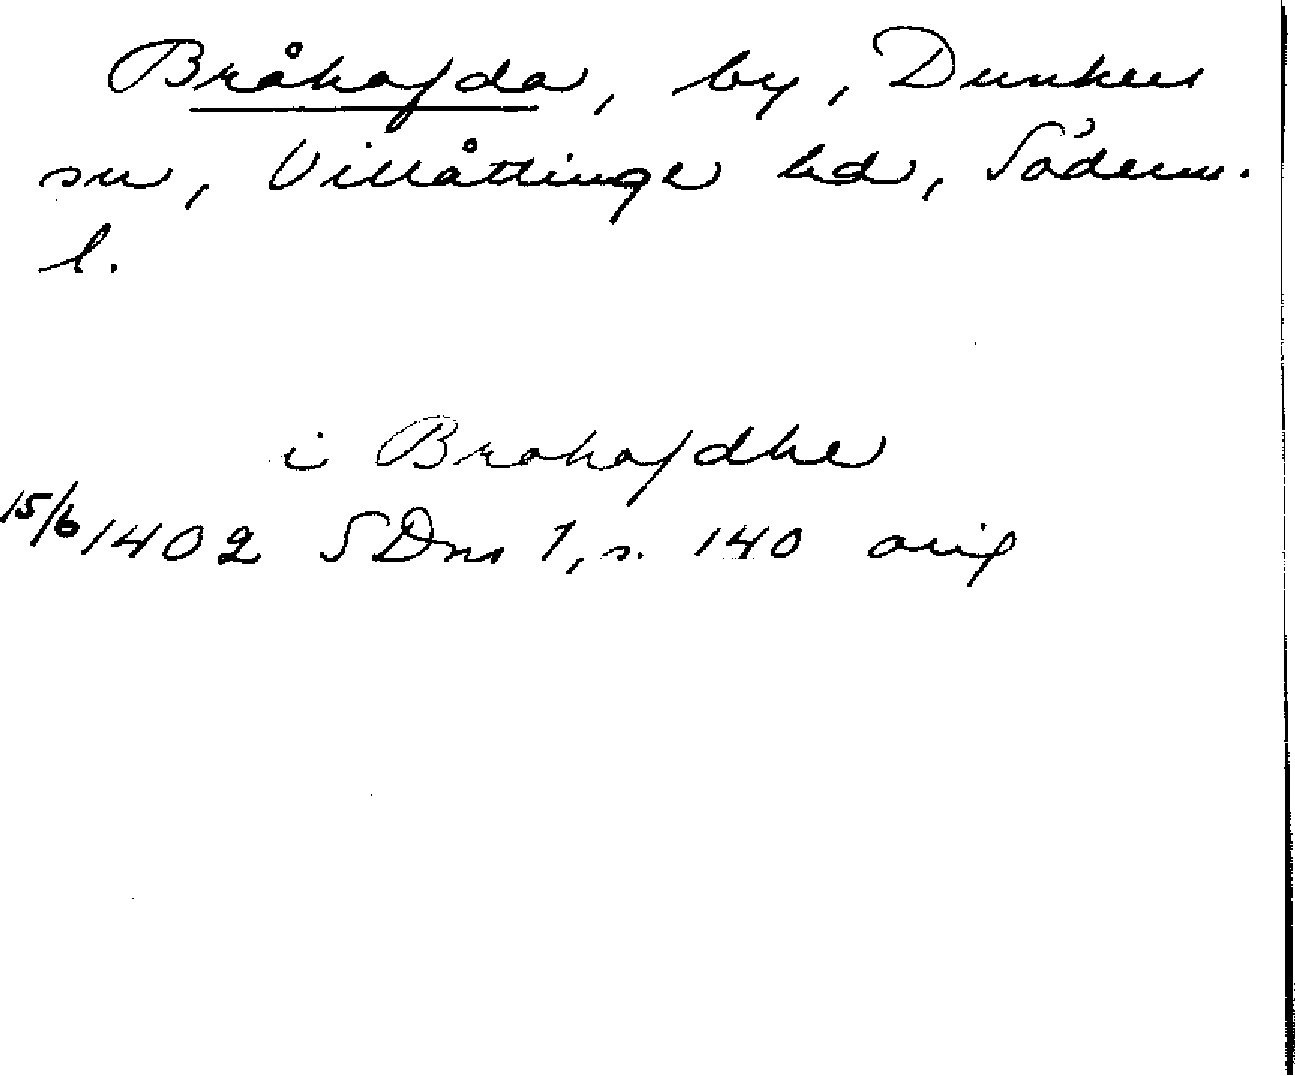 Bråhofda, by, Dunkers
sn, Villåttinge hd, Söderm.
l.
i Brahofdhe
15/6 1402 SDns 1, s. 140 orig